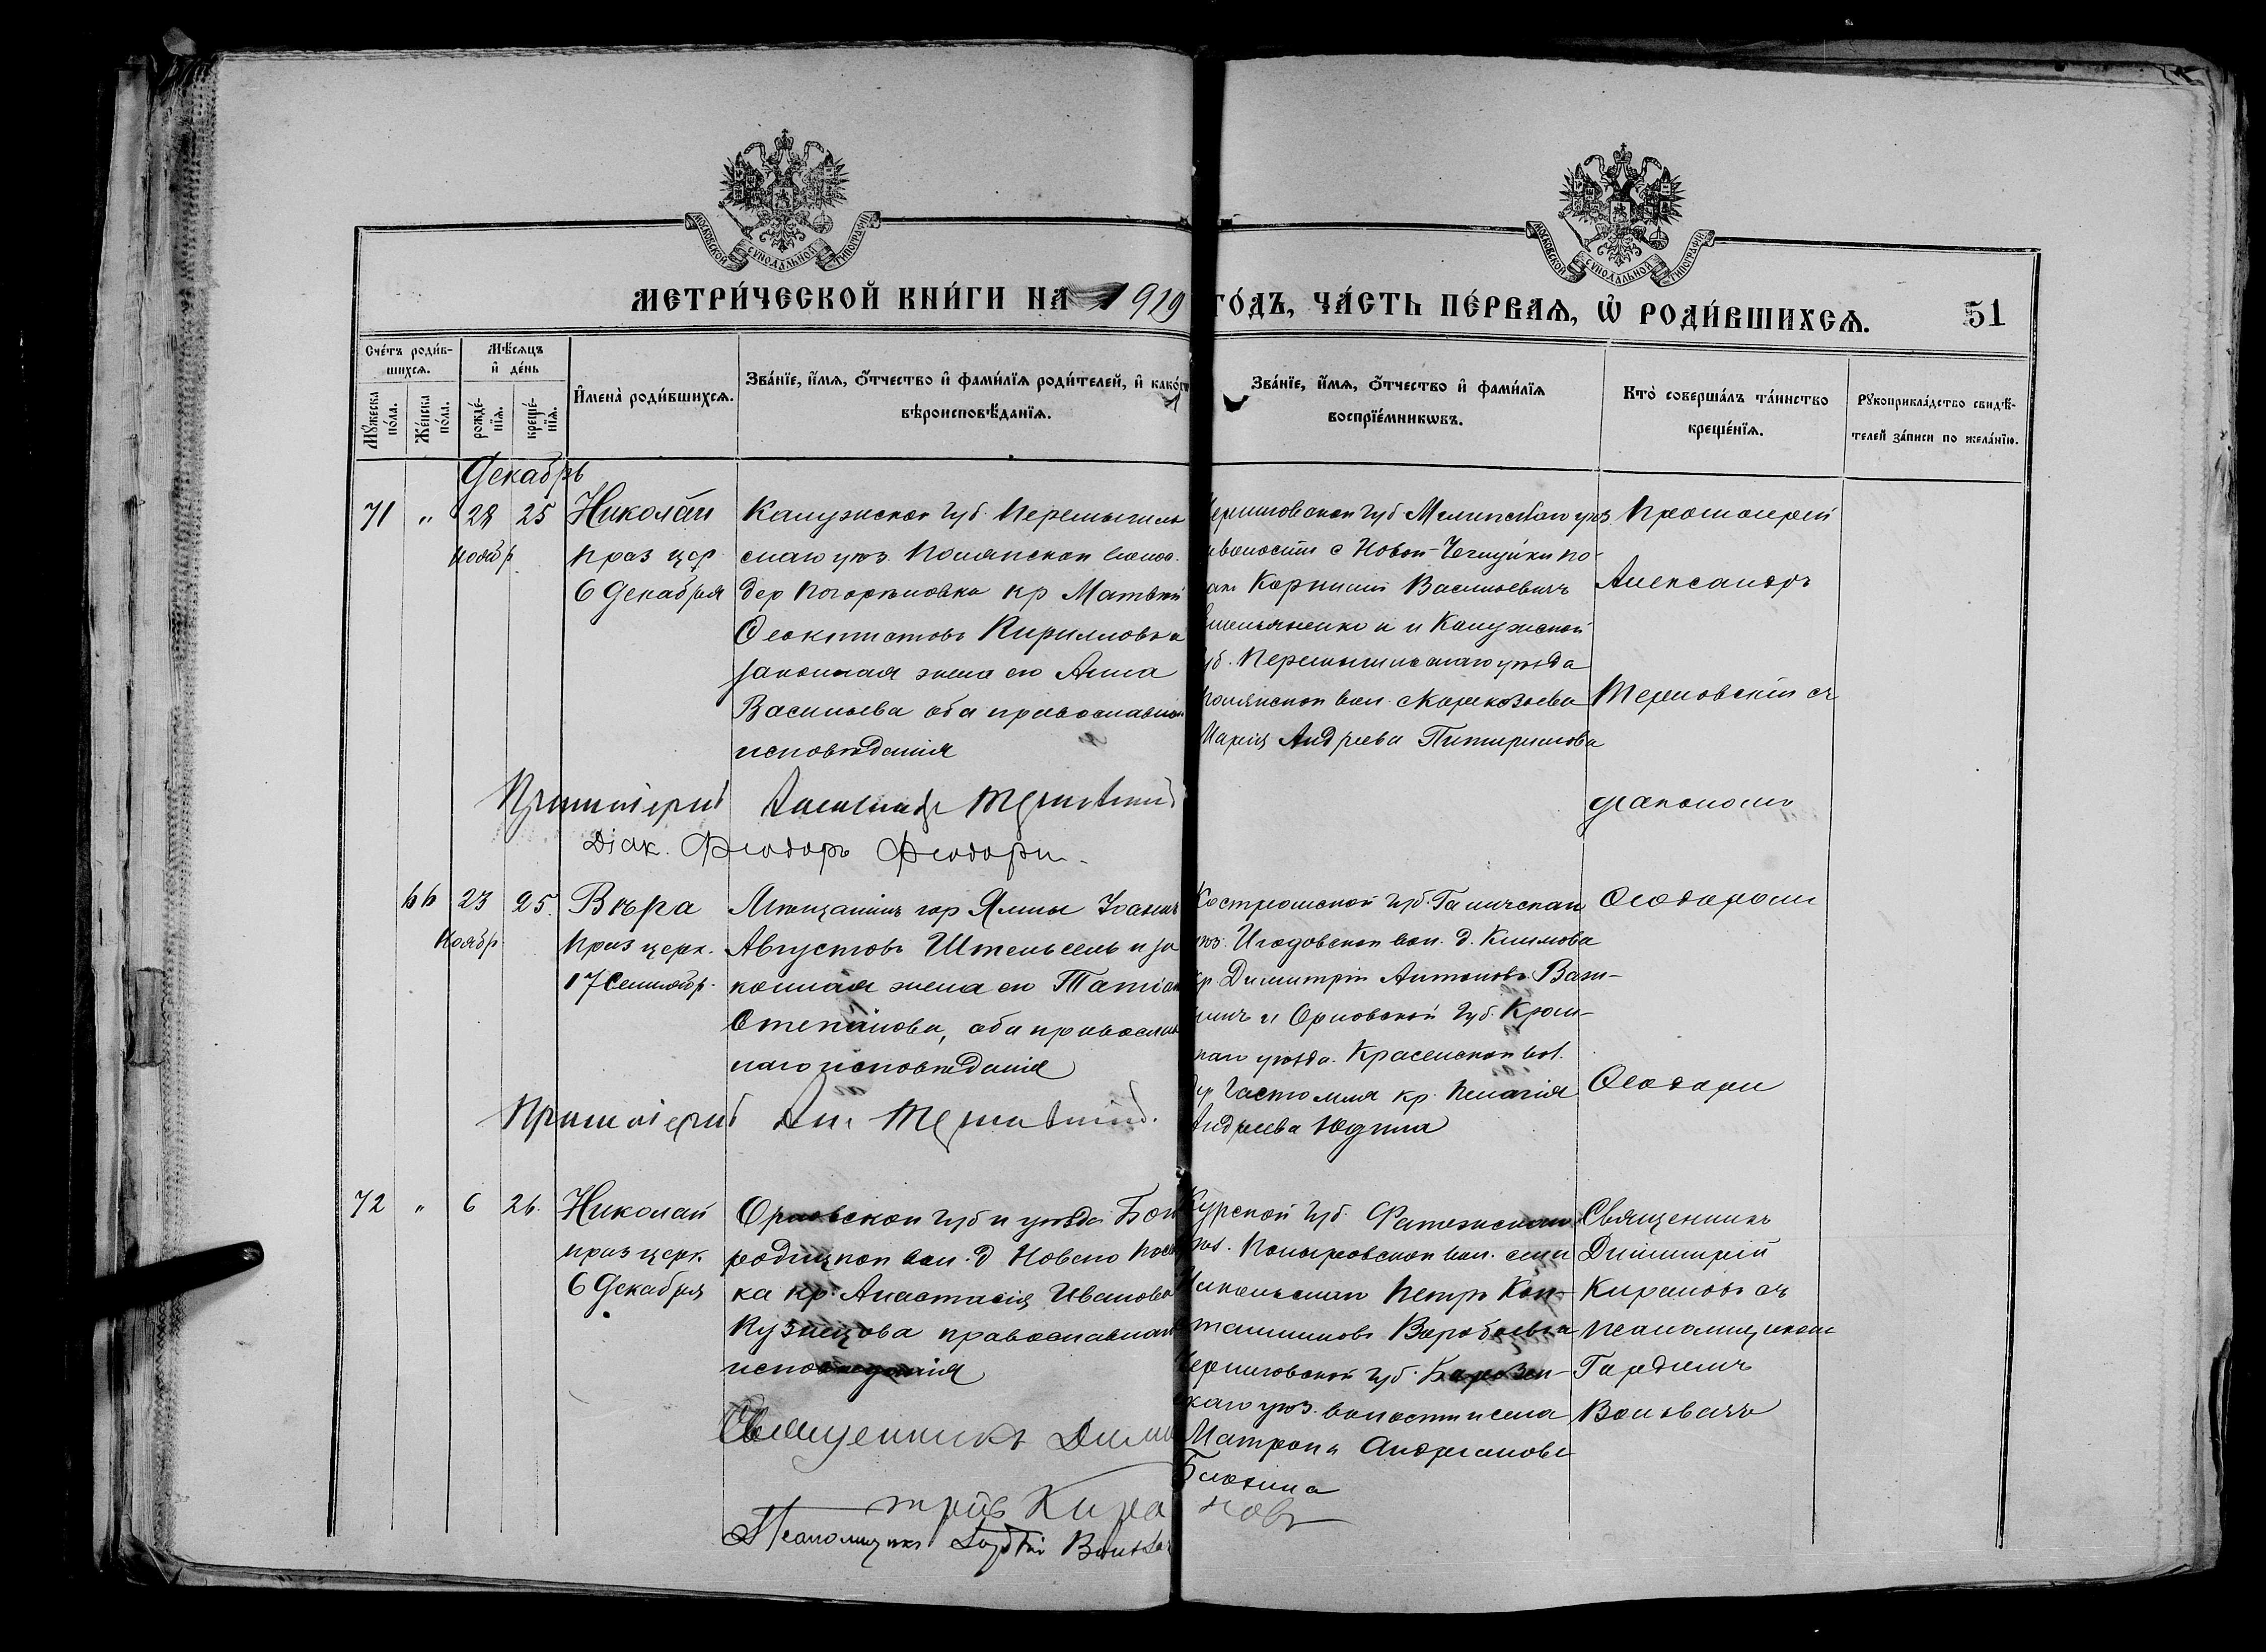 МОСКОВСКОЙ СУНОДАЛЬНОЙ ТИПОГРАФИИ
МОСКОВСКОЙ СУНОДАЛЬНОЙ ТИПОГРАФИИ
МЕТРИ́ЧЕСКОЙ КНИ́ГИ НА 1919
ГО́ДЪ, ЧА́СТЬ ПЕ́РВАѦ, Ѡ҆ РОДИ́ВШИХСѦ.
51
Сче́тъ роди́в-
шихсѧ.
Мꙋ́жеска по́ла.
Же́нска по́ла.
Мѣ́сѧцъ
и҆ де́нь
рожде́-нїѧ.
креще́-нїѧ.
И҆мена̀ роди́вшихсѧ.
Зва́нїе, и҆́мѧ, ѻ҆́тчество и҆ фами́лїѧ роди́телей, и҆ како́гѡ
вѣроисповѣ́данїѧ.
Зва́нїе, и҆́мѧ, ѻ҆́тчество и҆ фами́лїѧ
воспрїе́мникѡвъ.
Кто̀ соверша́лъ та́инство
креще́нїѧ.
Рꙋкоприкла́дство свидѣ́-
телей за́писи по жела́нїю.
Декабрь
71 " 28 25 Николай
Ноябр праз цер
6 Декабря
Калужской губ. Перемышль
скаго уѣз. Полянской волос.
дер Погорѣловка кр Матвѣй
Ѳеоктистовъ Кирилловъ и
законная жена его Анна
Васильева оба православнаго
исповѣданія
Черниговской губ Мглинскаго уѣз.
волости с Новой-
Корнилій Васильевичъ
и Калужской
губ. Перемышльскаго уѣзда
Полянской вол.
Марія Андреева Питиримова
Протоіерей
Александръ
Терновскій съ
діакономъ
Протоіерей Александр Терновскій
Діак. Феодоръ Феодори
66 23 25. Вѣра
Ноябр праз церк.
17 Сентябр.
Мѣщанинъ гор Ялты Іоаннъ
Августовъ Штельсель и за
конная жена его Татіана
Степанова, оба православ
наго исповѣданія
Костромской губ. Галичскаго
уѣз. Игодовской вол. д. Климова
кр. Димитрій Антоновъ Ваш-
и Орловской губ. Кром-
скаго уѣзда.
Гастомля кр. Пелагія
Андреева Юдина
Ѳеодоромъ
Ѳеодори
Протоіерей Ал. Терновскій.
72 " 6 26. Николай
праз церк.
6 Декабря
Орловской губ и уѣзда Бог
родицкой вол. д
ка кр. Анастасія Иванова
Кузнецова православнаго
исповѣданія
Курской губ. Фатежскаго
уѣз. Поныровской вол. села
Никольскаго Петръ Кон-
стантиновъ Воробьевъ и
Черниговской губ.
скаго уѣз. волости и села
Матрона Андреанова
Священникъ
Димитрій
Кирановъ съ
псаломщикомъ
Гордіемъ
Священникъ Дими
трій Кира новъ
Псаломщикъ Гордій